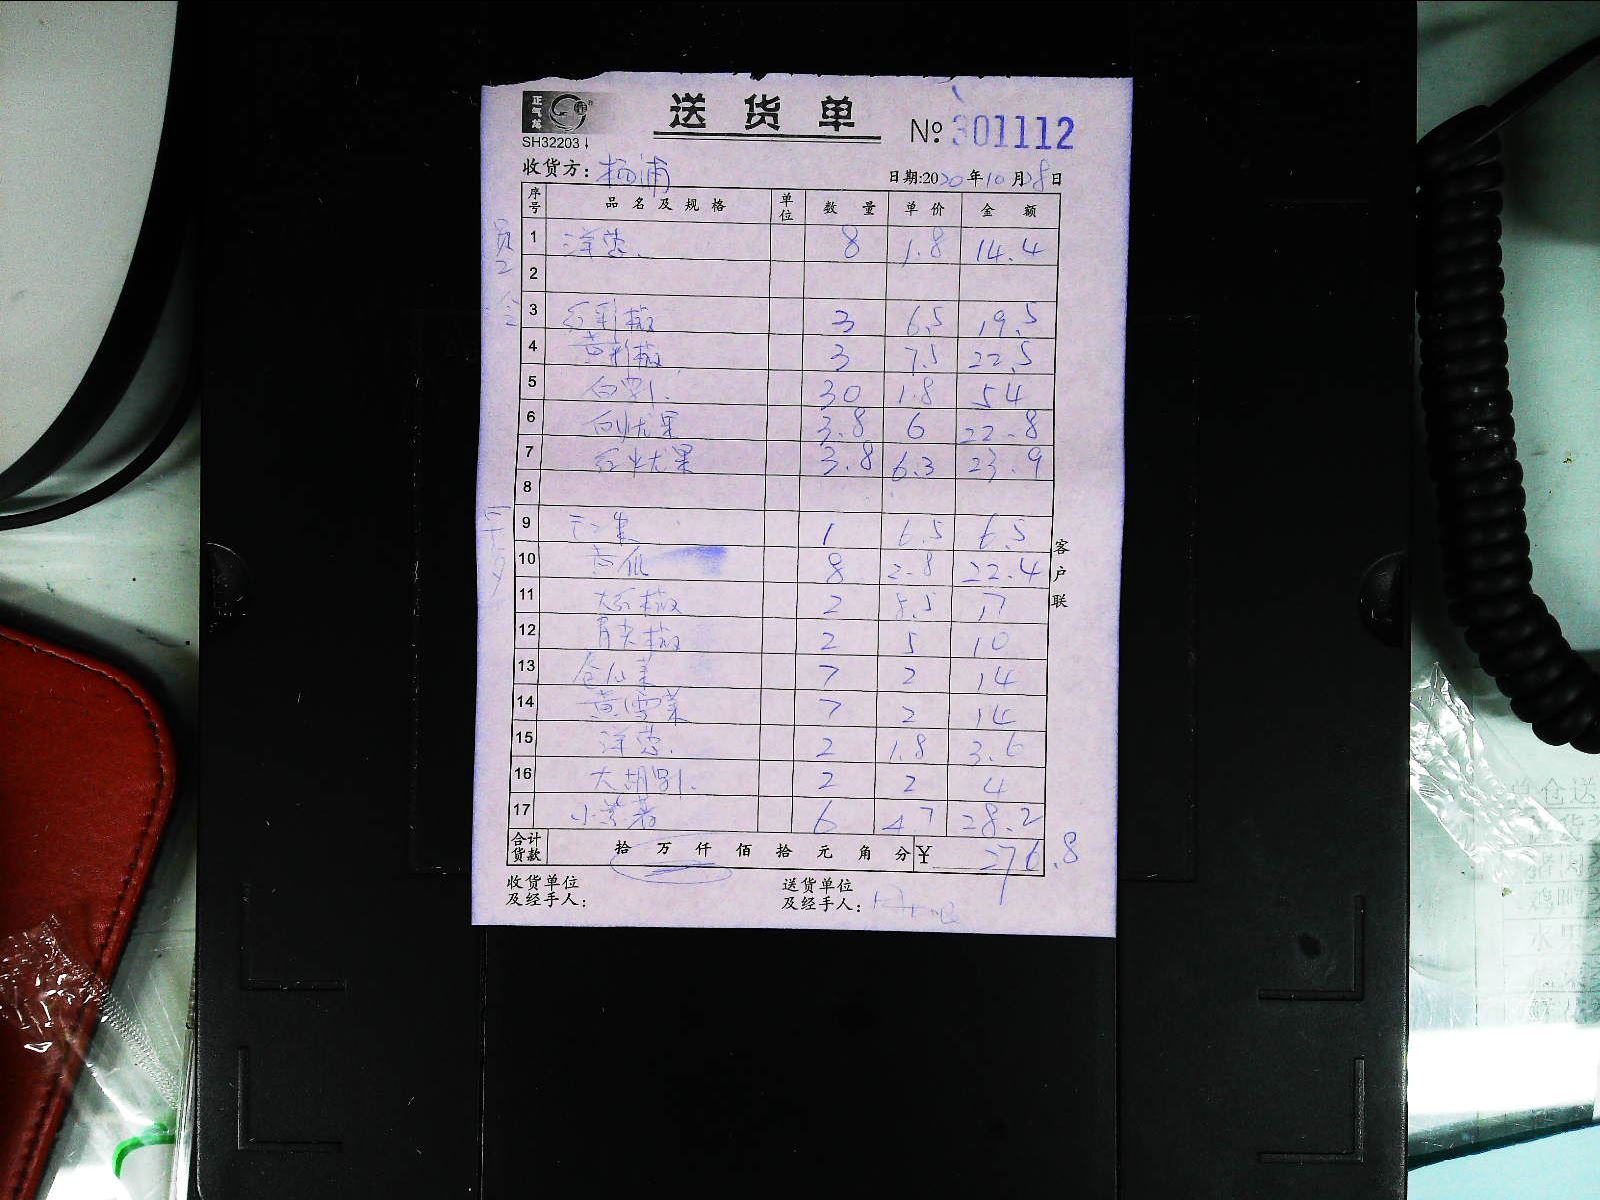 正气龙
送货单
SH32203
№ 301112
收货方: 杨浦
日期:2020年10月28日
序号 品名及规格 单位 数量 单价 金额
1 洋葱 8 1.8 14.4
2
3 红彩椒 3 6.5 19.5
4 黄彩椒 3 7.5 22.5
5 白萝卜 30 1.8 54
6 3.8 6 22.8
7 3.8 6.3 23.9
8
9 1 6.5 6.5
10 黄瓜 8 2.8 22.4
11 大红椒 2 8.5 17
12 青尖椒 2 5 10
13 7 2 14
14 黄雪菜 7 2 14
15 洋葱 2 1.8 3.6
16 大胡萝卜 2 2 4
17 6 4.7 28.2
合计货款 拾万仟佰拾元角分 ¥ 276.8
收货单位及经手人:
送货单位及经手人:
客户联